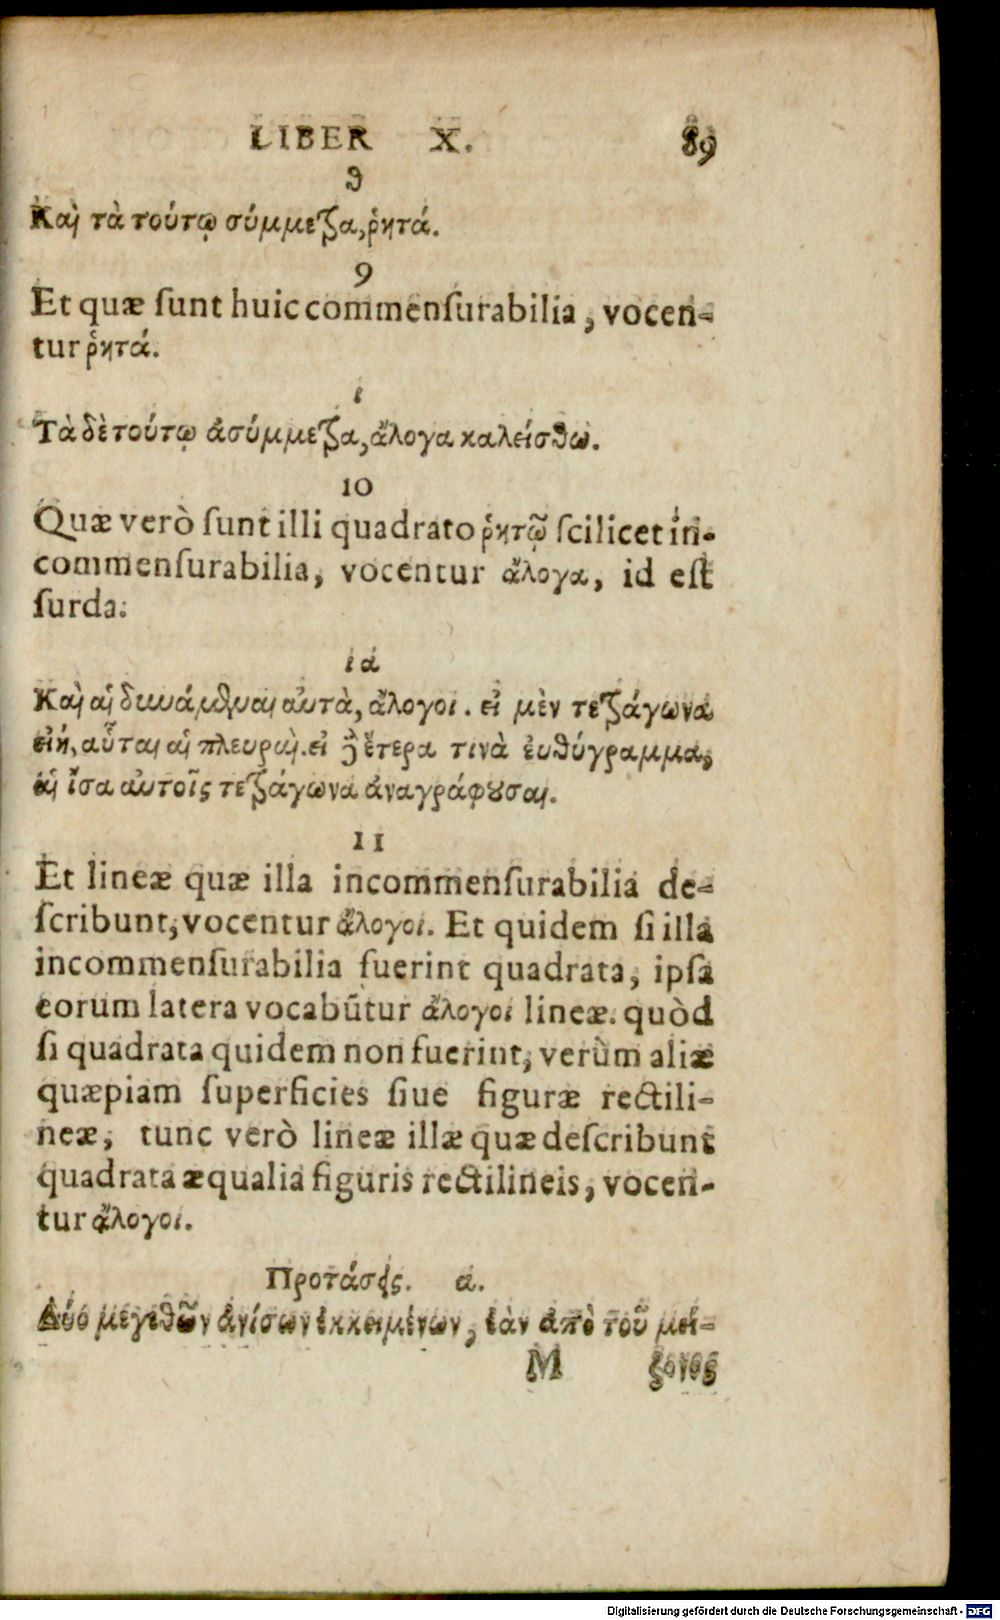 LIBER X. 89
θ
Καὶ τὰ τούτῳ σύμμετρα, ῥητά.
9
Et quæ ſunt huic commenſurabilia, vocen-
tur ῥητά.
ι
Τὰ δὲ τούτῳ ἀσύμμετρα, ἄλογα καλείσθω.
10
Quæ verò ſunt illi quadrato ῥητῷ ſcilicet in-
commenſurabilia, vocentur ἄλογα, id eſt
ſurda.
ια
Καὶ αἱ δυνάμεναι αὐτὰ, ἄλογοι. εἰ μὲν τετράγωνα
εἴη, αὗται αἱ πλευραὶ. εἰ δὲ ἕτερα τινὰ εὐθύγραμμα,
αἱ ἴσα αὐτοῖς τετράγωνα ἀναγράφουσαι.
11
Et lineæ quæ illa incommenſurabilia de-
ſcribunt, vocentur ἄλογοι. Et quidem ſi illa
incommenſurabilia fuerint quadrata, ipſa
eorum latera vocabūtur ἄλογοι lineæ. quòd
ſi quadrata quidem non fuerint, verùm aliæ
quæpiam ſuperficies ſiue figuræ rectili-
neæ, tunc verò lineæ illæ quæ deſcribunt
quadrata æqualia figuris rectilineis, vocen-
tur ἄλογοι.
Προτάσεις. α.
Δύο μεγεθῶν ἀνίσων ἐκκειμένων, ἐὰν ἀπὸ τοῦ μεί-
M ζονος
Digitalisierung gefördert durch die Deutsche Forschungsgemeinschaft - DFG